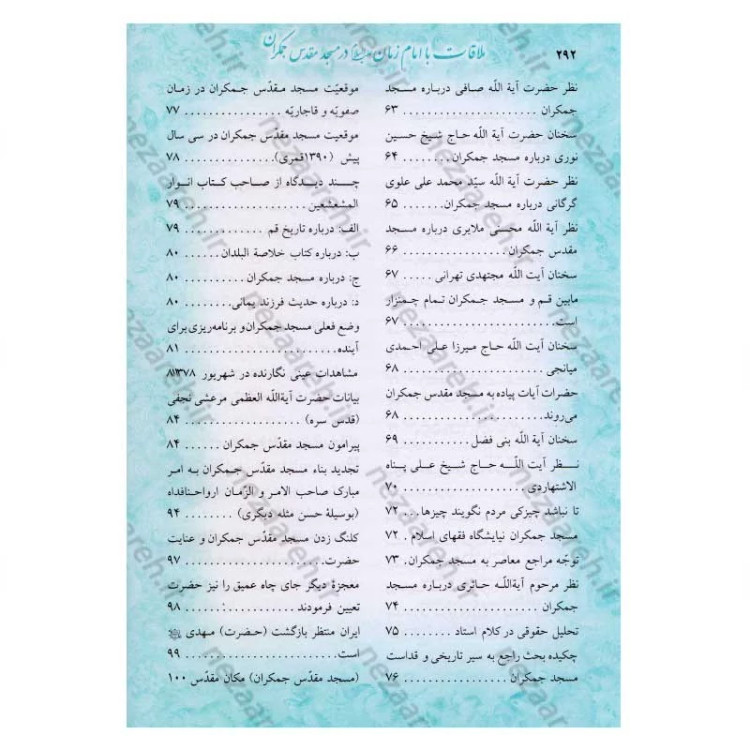 ۲۹۲
ملاقات با امام زمان در مسجد مقدس جمکران
نظر حضرت آیة اللّه صافی درباره مسجد
جمکران .................. ۶۳
سخنان حضرت آیة اللّه حاج شیخ حسین
نوری درباره مسجد جمکران....... ۶۴
نظر حضرت آیة اللّه سیّد محمد علی علوی
گرگانی درباره مسجد جمکران....... ۶۵
نظر آیة اللّه محسنی ملایری درباره مسجد
مقدس جمکران.............. ۶۶
سخنان آیت اللّه مجتهدی تهرانی ..... ۶۷
مابین قم و مسجد جمکران تمام چمنزار
است.................... ۶۷
سخنان آیت اللّه حاج میرزا علی احمدی
میانجی .................. ۶۸
حضرات آیات پیاده به مسجد مقدس جمکران
می‌روند.................. ۶۸
سخنان آیة اللّه بنی فضل.......... ۶۹
نظر آیت اللّه حاج شیخ علی پناه
الاشتهاردی ................ ۷۰
تا نباشد چیزکی مردم نگویند چیزها... ۷۲
مسجد جمکران نمایشگاه فقهای اسلام . ۷۲
توجّه مراجع معاصر به مسجد جمکران. ۷۳
نظر مرحوم آیةاللّه حائری درباره مسجد
جمکران .................. ۷۴
تحلیل حقوقی در کلام استاد ........ ۷۵
چکیده بحث راجع به سیر تاریخی و قداست
مسجد جمکران .............. ۷۶
موقعیّت مسجد مقدّس جمکران در زمان
صفویّه و قاجاریّه ............. ۷۷
موقعیت مسجد مقدّس جمکران در سی سال
پیش (۱۳۹۰قمری)............ ۷۸
چند دیدگاه از صاحب کتاب انوار
المشعشعین................ ۷۹
الف: درباره تاریخ قم ............ ۷۹
ب: درباره کتاب خلاصة البلدان ...... ۸۰
ج: درباره مسجد جمکران ......... ۸۰
د: درباره حدیث فرزند یمانی........ ۸۰
وضع فعلی مسجد جمکران و برنامه‌ریزی برای
آینده.................... ۸۱
مشاهدات عینی نگارنده در شهریور ۸۱۳۷۸
بیانات حضرت آیةاللّه العظمی مرعشی نجفی
(قدس سره) ................ ۸۴
پیرامون مسجد مقدّس جمکران ...... ۸۴
تجدید بناء مسجد مقدّس جمکران به امر
مبارک صاحب الامر و الزّمان ارواحنافداه
(بوسیلهٔ حسن مثله دیگری) ........ ۹۴
کلنگ زدن مسجد مقدّس جمکران و عنایت
حضرت.................. ۹۷
معجزهٔ دیگر جای چاه عمیق را نیز حضرت
تعیین فرمودند .............. ۹۸
ایران منتظر بازگشت (حضرت) مهدی
است.................... ۹۹
(مسجد مقدّس جمکران) مکان مقدّس ۱۰۰
nezaareh.ir